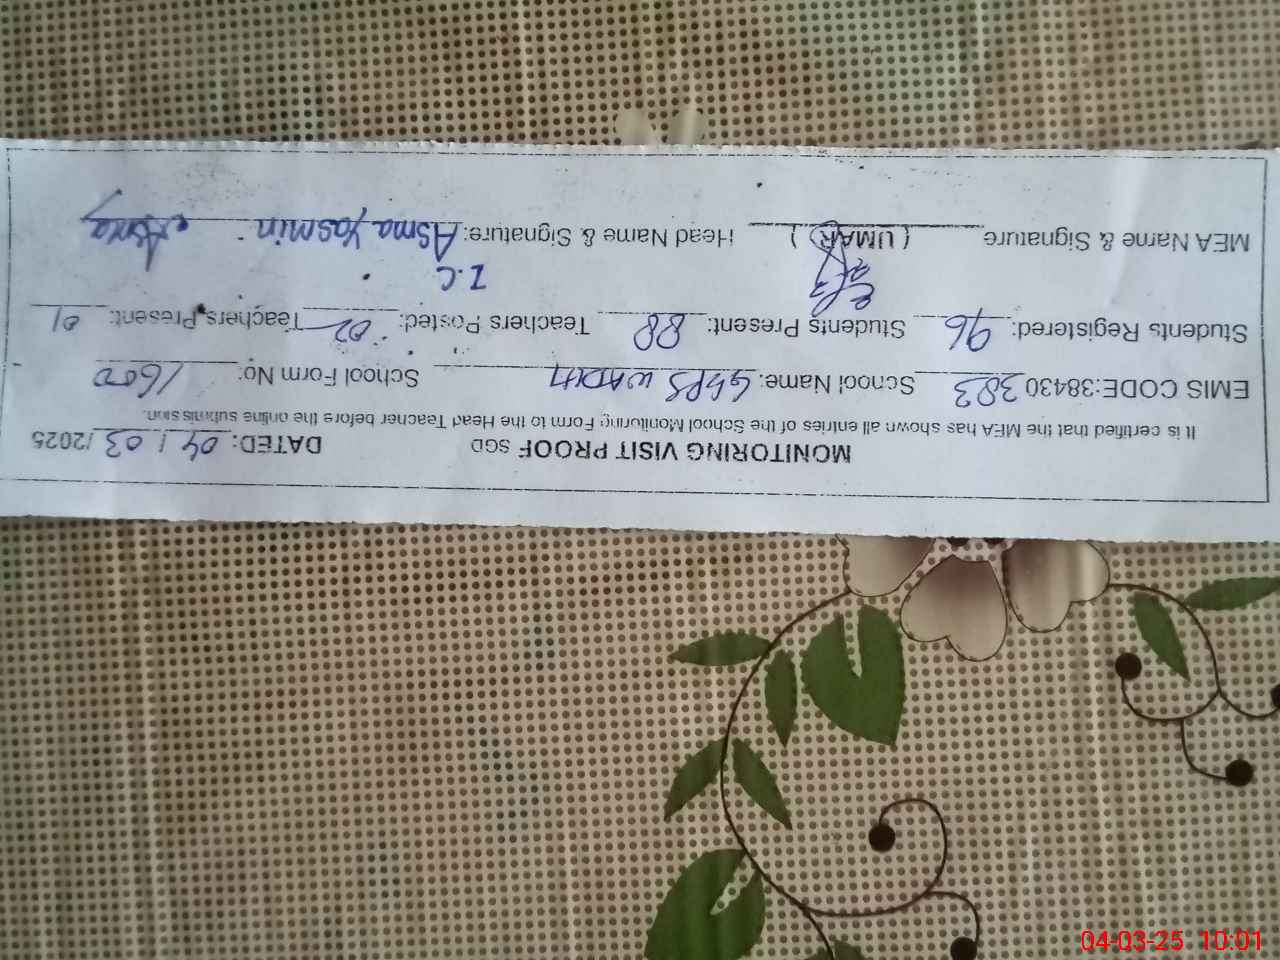 MONITORING VISIT PROOF SGD DATED: 04 / 03 /2025
It is certified that the MEA has shown all entries of the School Monitoring Form to the Head Teacher before the online submission.
EMIS CODE:38430383 School Name: GGPS WADHI School Form No: 1600
Students Registered: 96 Students Present: 88 Teachers Posted: 02 Teachers Present: 01
I.C
MEA Name & Signature (UMAR) Head Name & Signature: Asma Yasmin Asma
04-03-25 10:01